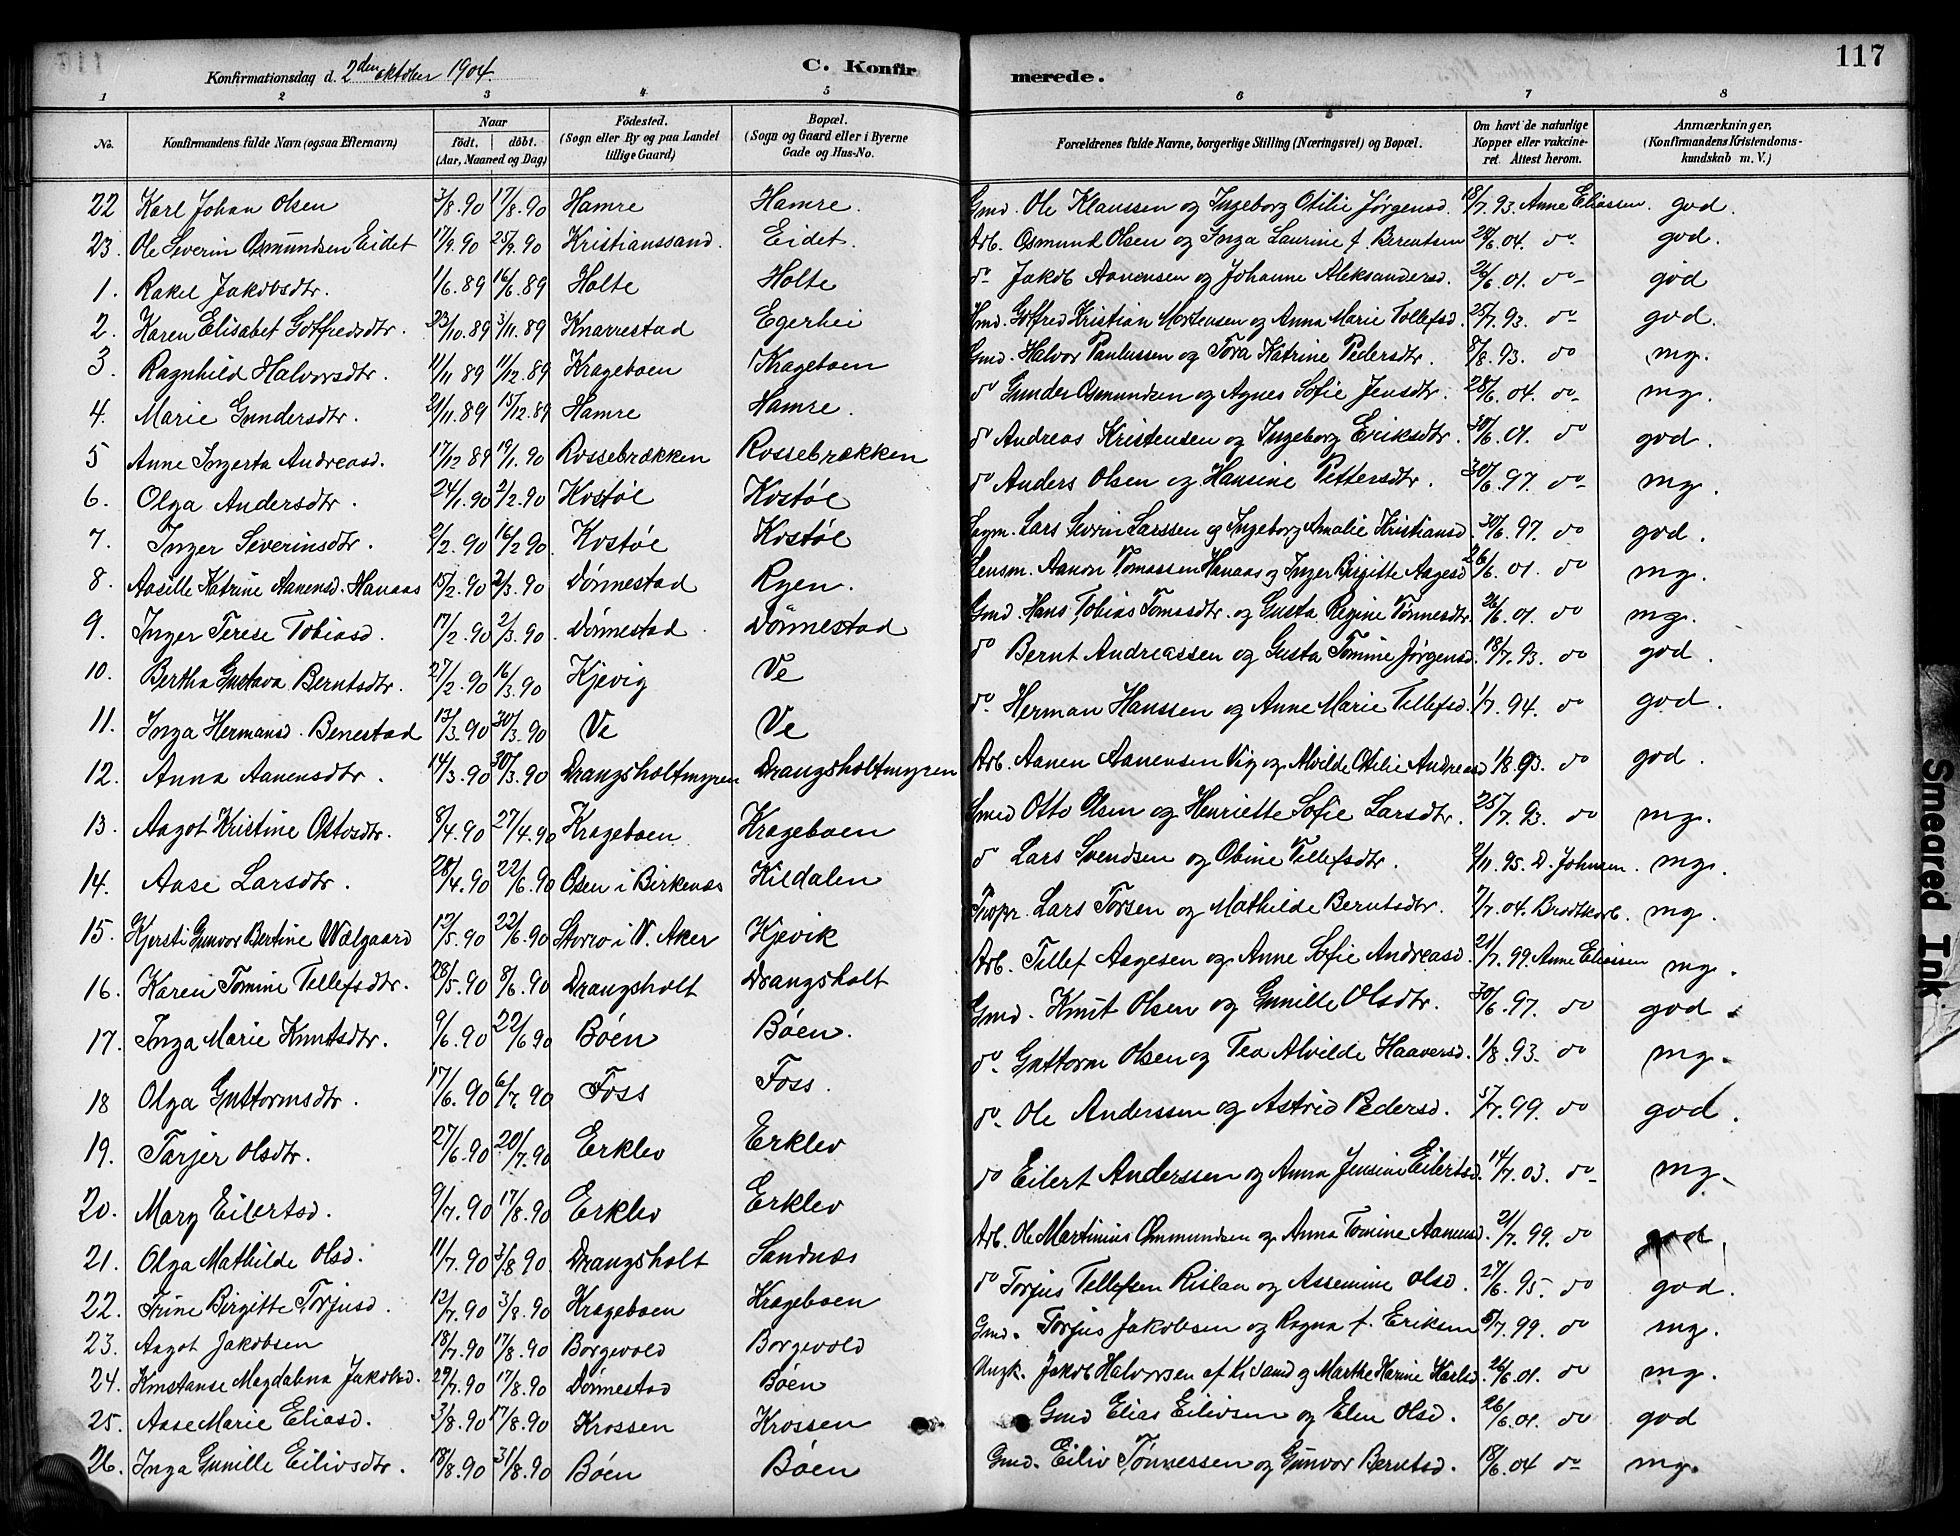 117
Konfirmationsdag d. 2den oktober 1904.
C. Konfirmerede.
1 2 3 4 5 6 7 8
No. Konfirmandens fulde Navn (ogsaa Efternavn) Naar født. døbt. (Aar, Maaned og Dag) Fødested. (Sogn eller By og paa Landet tillige Gaard) Bopæl. (Sogn og Gaard eller i Byerne Gade og Hus-No. Forældrenes fulde Navne, borgerlige Stilling (Næringsvei) og Bopæl. Om havt de naturlige Kopper eller vakcineret. Attest herom. Anmærkninger, (Konfirmandens Kristendomskundskab m. V.)
22 Karl Johan Olsen 3/8.90 17/8.90 Hamre Hamre. Gmd. Ole Klaussen og Ingeborg Otilie Jørgensd. 18/7.93. Anne Eliassen. god.
23. Ole Severin Osmundsen Eidet 17/9.90 25/9.90 Kristianssand. Eidet. Arb. Osmund Olsen og Inga Laurine f. Berentsen 24/6.04. do god.
1. Rakel Jakobsdtr. 1/6.89 16/6.89 Holte Holte do Jakob Aanensen og Johanne Aleksandersd. 26/6.01. do god
2. Karen Elisabet Gotfredsdtr. 23/10.89 3/11.89 Knarrestad Egerhei Hmd. Gotfred Kristian Mortensen og Anna Marie Tollefsd. 25/7.93. do god.
3. Ragnhild Halvorsdtr. 11/11 89 11/12.89 Krageboen Krageboen Gmd. Halvor Paulussen og Tora Katrine Pedersdtr. 8/8.93. do mg.
4. Marie Gundersdtr. 21/11.89 15/12.89 Hamre Hamre. do Gunder Osmundsen og Agnes Sofie Jensdtr. 28/6.04. do mg.
5 Anne Ingerta Andreasd. 17/12 89 19/1.90 Rossebrækken Rossebrækken do Andreas Kristensen og Ingeborg Eriksdtr. 30/6.01. do god.
6. Olga Andersdtr. 24/1.90 2/2.90 Kostøl Kostøl do Anders Olsen og Hansine Pettersdtr. 30/6.97. do mg.
7. Inger Severinsdtr. 2/2.90 16/2 90 Kostøl Kostøl Lars Severin Larssen og Ingeborg Amalie Kristiansd. 30/6.97. do god.
8. Aasille Katrine Aanensd. Hanaas 15/2.90 2/3.90 Dønnestad Ryen. Lensm. Aanon Tomassen Hanaas og Inger Birgitte Aagesd 26/6.01. do mg.
9. Inger Terese Tobiasd. 17/2.90 2/3.90 Dønnestad Dønnestad Gmd. Hans Tobias Tomasdtr. og Gusta Regine Tønnesdtr. 26/6.01. do mg.
10. Bertha Gustava Berntsdtr. 27/2.90 16/3.90 Kjevig Ve do Bernt Andreassen og Gusta Tomine Jørgensd. 18/7.93. do god.
11. Inga Hermansd. Benestad 13/3.90 30/3.90 Ve Ve do Herman Hanssen og Anne Marie Tellefsd. 1/7.94. do god.
12. Anna Aanensdtr. 14/3.90 30/3.90 Drangsholtmyren Drangsholtmyren Arb. Aanen Aanensen Vig og Alvilde Otilie Andreasd 1/8.93. do god.
13. Aagot Kristine Ottosdtr. 8/4.90 27/4.90 Krageboen Krageboen Gmd Otto Olsen og Henriette Sofie Larsdtr. 25/7.93. do mg.
14. Aase Larsdtr. 28/4.90 22/6.90 Osen i Birkenes Kildalen do Lars Svendsen og Obine Tellefsdtr. 2/11.95. D. Johnsen. mg.
15. Kjersti Gunvor Bertine Walgaard 13/5.90 22/6.90 Storro i V. Aker Kjevik Propr. Lars Torsen og Mathilde Berntsdtr. 7/7.04. Brodtkorb. mg.
16. Karen Tomine Tellefsdtr. 28/5.90 8/6.90 Drangsholt Drangsholt Arb. Tellef Aagesen og Anne Sofie Andreasd. 21/7.99. Anne Eliassen mg.
17. Inga Marie Knutsdtr. 9/6.90 22/6 90 Bøen Bøen. Gmd. Knut Olsen og Gunille Olsdtr. 30/6.97. do god.
18 Olga Guttormsdtr. 17/6.90 6/7.90 Foss Foss. do Guttorm Olsen og Tea Alvilde Haaversd. 1/8.93. do mg.
19. Tarjer Olsdtr. 27/6.90 20/7.90 Erklev Erklev do Ole Anderssen og Astrid Pedersd. 5/7.99. do god.
20. Mary Eilertsd. 9/7.90 17/8.90 Erklev Erklev do Eilert Anderssen og Anna Jensine Eilertsd. 14/7.03. do mg.
21. Olga Mathilde Olsd. 11/7.90 3/8.90 Drangsholt Sandnæs Arb. Ole Martinius Ommundsen og Anna Tomine Aanensd. 21/7.99. do god.
22. Trine Birgitte Torjusd. 12/7.90 3/8.90 Krageboen Krageboen do Torjus Tellefsen Rislaa og Assemine Olsd. 27/6.95. do god.
23. Aagot Jakobsen 18/7.90 17/8.90 Borgevold Borgevold Gmd. Torjus Jakobsen og Ragna f. Eriksen 5/7.99. do mg.
24. Konstanse Magdalena Jakobsd. 29/7.90 17/8.90 Dønnestad Bøen Ungk. Jakob Halvorsen af Kr.sand og Marthe Karine Karlsd. 26/6.01. do mg.
25. Aase Marie Eliasd. 3/8.90 17/8.90 Krossen Krossen Gmd Elias Eilivsen og Elen Olsd. 26/6.01. do god
26. Inga Gunille Eilivsdtr. 18/8.90 31/8.90 Bøen Bøen Gmd. Eiliv Tønnessen og Gunvor Berntsd. 18/6.04 do mg.
Smeared Ink